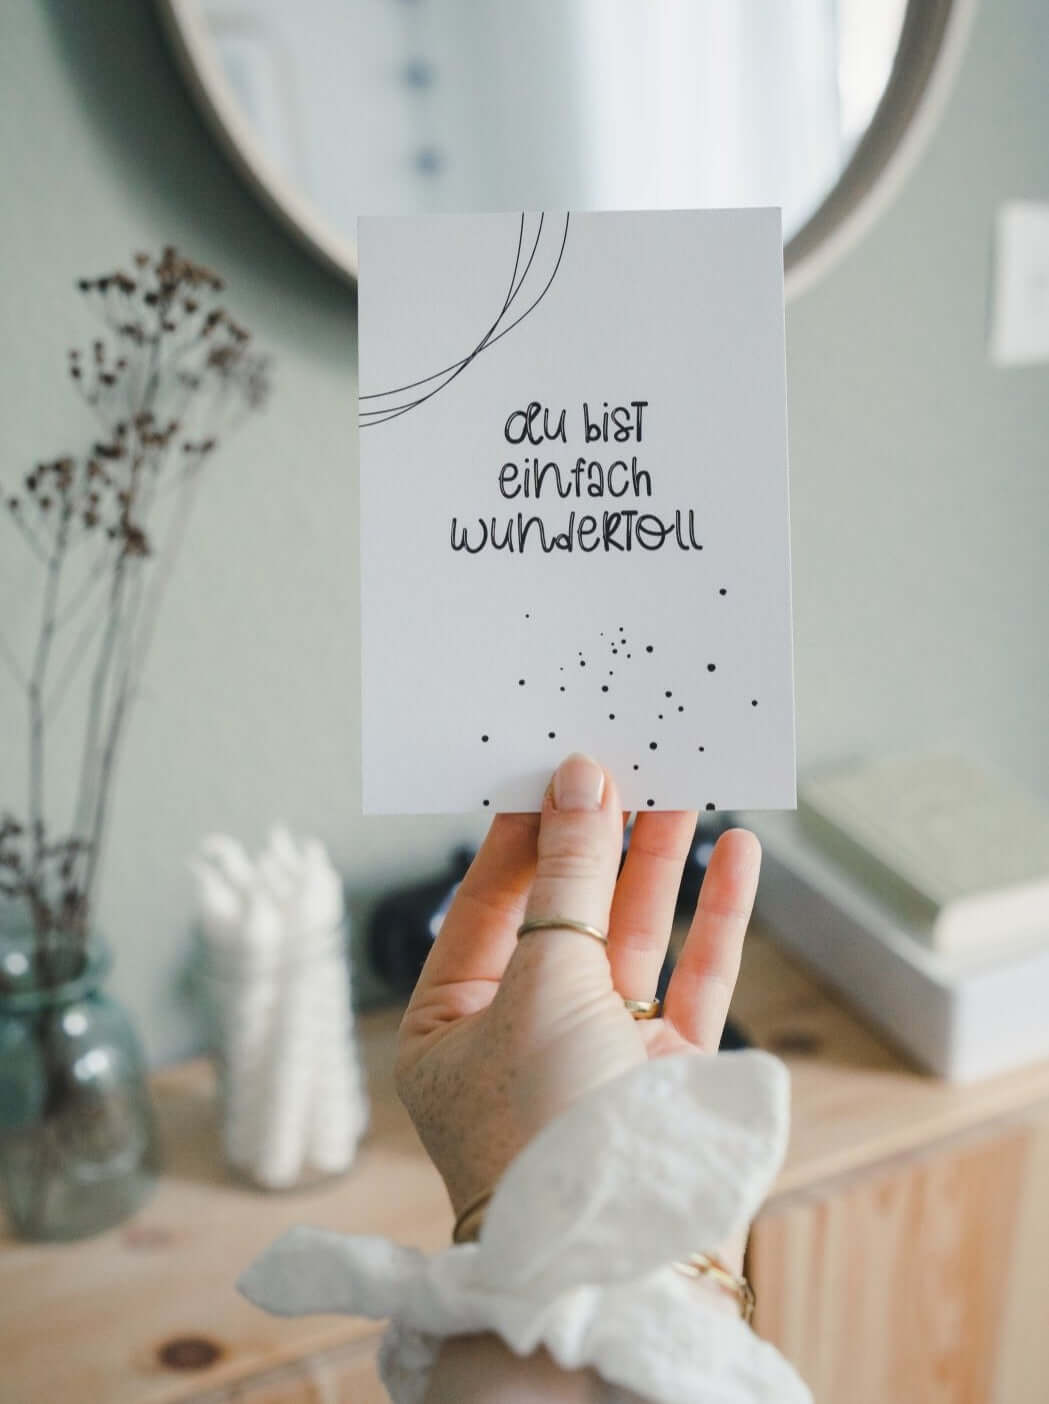 du bist
einfach
wundertoll